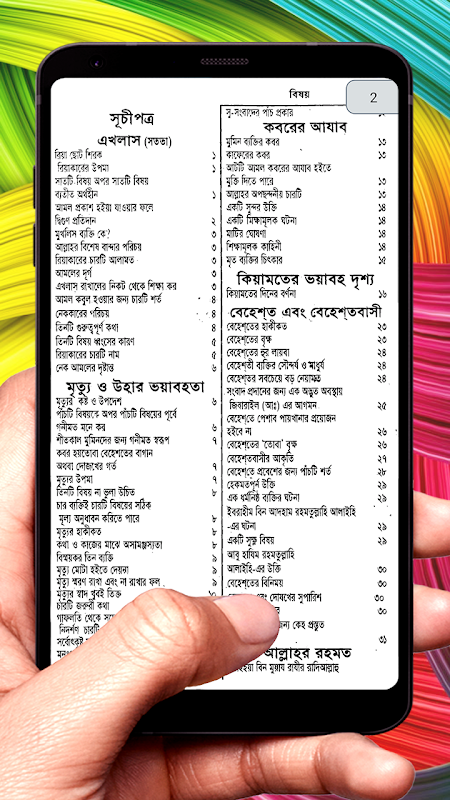 2
বিষয়
সূচীপত্র
এখলাস (সততা)
রিয়া ছোট শিরক ১
রিয়াকারের উপমা ১
সাতটি বিষয় অপর সাতটি বিষয়
ব্যতীত অর্থহীন ১
আমল প্রকাশ হইয়া যাওয়ার ফলে
দ্বিগুণ প্রতিদান ২
মুখলিস ব্যক্তি কে? ৩
আল্লাহর বিশেষ বান্দার পরিচয় ৩
রিয়াকারের চারটি আলামত ৩
আমলের দূর্গ ৩
এখলাস রাখালের নিকট থেকে শিক্ষা কর ৩
আমল কবুল হওয়ার জন্য চারটি শর্ত ৪
নেককারের পরিচয় ৪
তিনটি গুরুত্বপূর্ণ কথা ৪
তিনটি বিষয় ধ্বংসের কারণ ৫
রিয়াকারের চারটি নাম ৫
নেক আমলের দৃষ্টান্ত ৬
মৃত্যু ও উহার ভয়াবহতা
মৃত্যুর কষ্ট ও উপদেশ ৬
পাঁচটি বিষয়কে অপর পাঁচটি বিষয়ের পূর্বে
গনীমত মনে কর ৬
শীতকাল মুমিনদের জন্য গনীমত স্বরূপ ৭
কবর হয়তোবা বেহেশতের বাগান
অথবা দোজখের গর্ত ৭
মৃত্যুর উপমা ৭
তিনটি বিষয় না ভুলা উচিত ৮
চার ব্যক্তিই চারটি বিষয়ের সঠিক
মূল্য অনুধাবন করিতে পারে ৮
মৃত্যুর হাকীকত ৮
কথা ও কাজের মাঝে অসামঞ্জস্যতা ৮
বিস্ময়কর তিন ব্যক্তি ৯
মৃত্যু মোটা হইতে দেয়না ৯
মৃত্যু স্মরণ রাখা এবং না রাখার ফল ৯
মৃত্যুর স্বাদ খুবই তিক্ত ১০
চারটি জরুরী কথা
গাফলতি থেকে
নিদর্শণ চারটি
সর্বোৎকৃষ্ট
সু-সংবাদের পাঁচ প্রকার
কবরের আযাব
মুমিন ব্যক্তির কবর ১৩
কাফেরের কবর ১৩
আটটি আমল কবরের আযাব হইতে
মুক্তি দিতে পারে ১৩
আল্লাহর অপছন্দনীয় চারটি ১৩
একটি সুন্দর উক্তি ১৪
একটি শিক্ষামূলক ঘটনা ১৪
মাটির ঘোষণা ১৪
শিক্ষামূলক কাহিনী ১৪
মৃত ব্যক্তির চিৎকার ১৫
কিয়ামতের ভয়াবহ দৃশ্য
কিয়ামতের দিনের বর্ণনা ১৬
বেহেশ্ত এবং বেহেশ্তবাসী
বেহেশ্তের হাকীকত ২৩
বেহেশ্তের বৃক্ষ ২৩
বেহেশ্তের হুর লায়বা ২৪
বেহেশ্তী ব্যক্তির সৌন্দর্য ও মাধুর্য ২৪
বেহেশ্তের সবচেয়ে বড় নেয়ামত ২৪
সংবাদ প্রদানের জন্য এক অদ্ভুত অবস্থায়
জিবরাইল (আঃ) এর আগমন ২৫
বেহেশ্তে পেশাব পায়খানার প্রয়োজন
হইবে না ২৬
বেহেশ্তের 'তোবা' বৃক্ষ ২৬
বেহেশ্তবাসীর আকৃতি ২৭
বেহেশ্তে প্রবেশের জন্য পাঁচটি শর্ত ২৮
হেকমতপূর্ণ উক্তি ২৮
এক ধর্মনিষ্ঠ ব্যক্তির ঘটনা ২৯
ইবরাহীম বিন আদহাম রহমতুল্লাহি আলাইহি
-এর ঘটনা ২৯
একটি সুক্ষ্ম বিষয় ২৯
আবু হাযিম রহমতুল্লাহি
আলাইহি-এর উক্তি ৩০
বেহেশ্তের বিনিময় ৩০
এবং দোযখের সুপারিশ ৩০
৩০
জন্য কেহ প্রস্তুত
৩১
আল্লাহর রহমত
বিন মুয়ায রাযীর রাদিআল্লাহু